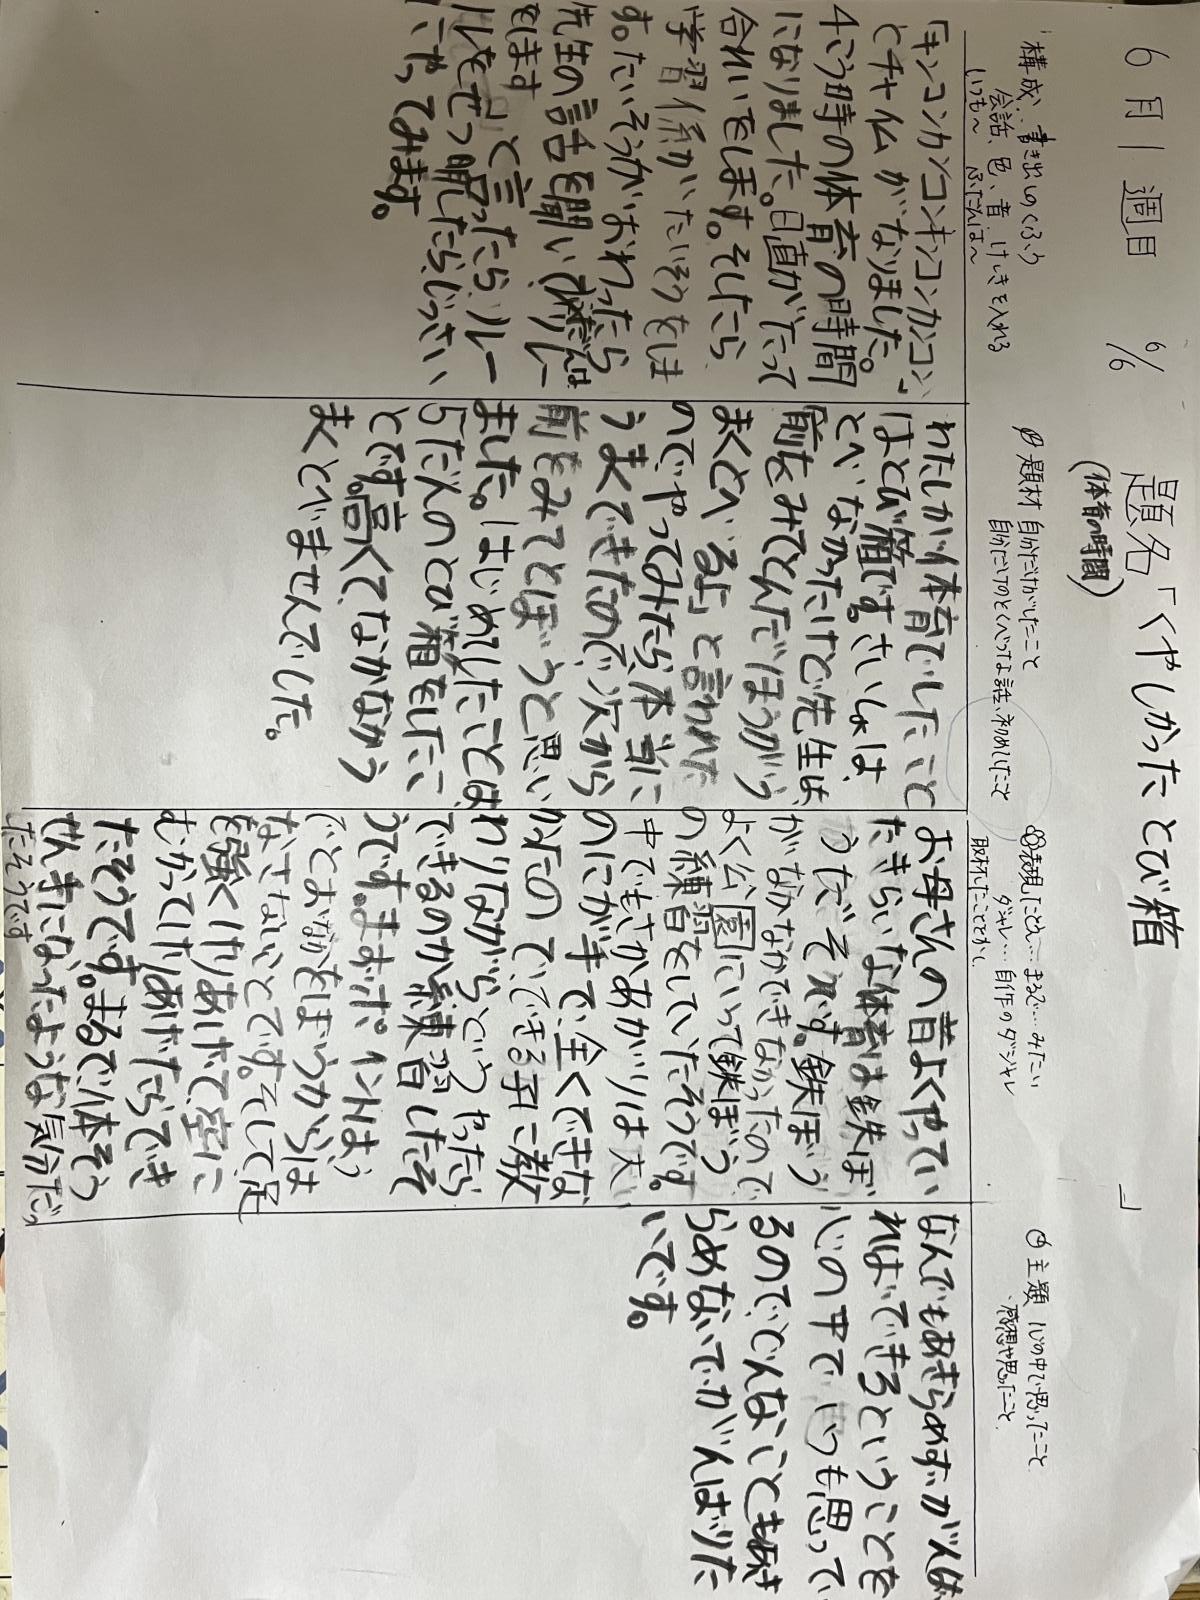 6月1週目 6/6 題名「くやしかったとび箱」
(体育の時間)
構成…書き出しのくふう
会話、色、音、けしきを入れる
いつも〜 ふだんは〜
「キンコンカンコンキンコンカンコン」
とチャイムがなりました。
4こう時の体育の時間
になりました。日直がたって
合れいをします。そしたら
学習係がたいそうをしま
す。たいそうがおわったら
先生の話を聞いて
をします」と言ったらルー
ルをせつ明したらじっさい
にやってみます。
題材 自分だけがしたこと
自分だけのとくべつな話、初めてしたこと
わたしが体育でしたこと
はとび箱です。さいしょは
とべなかったけど先生は、
「前をみてとんだほうがう
まくとべるよ」と言われた
のでやってみたら、本当に
うまくできたので、次から
前をみてとぼうと思い
ました。はじめてしたことは、
5だんのとび箱をしたこ
とです。高くてなかなかう
まくとべませんでした。
表現 たとえ…まるで…みたい
ダジャレ…自作のダジャレ
取材したこととかし
お母さんの昔よくやってい
たきらいな体育は鉄ぼ
うだそうです。鉄ぼう
がなかなかできなかったので
よく公園にいって鉄ぼう
の練習をしていたそうです。
中でもさかあがりは大
のにが手で全くできな
かったので、できる子に教
わりながらどうやったら
できるのか練習したそ
うです。まずポイントはう
でとおなかをぼうからは
なさないことです。そして足
を強くけりあげて、空に
むかってけりあげたらでき
たそうです。まるで体そう
せん手になったような気分だっ
たそうです
主題 心の中で思ったこと
感想や思ったこと
なんでもあきらめずがんば
ればできるということを
心の中でいつも思って
るのでどんなことも
らめないでがんばりた
いです。